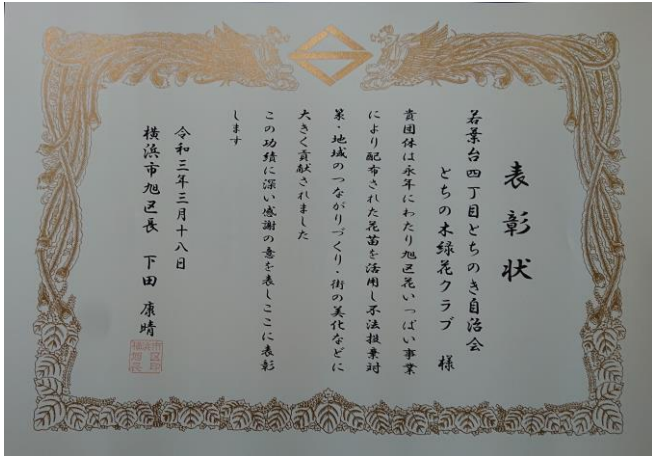 表彰状
若葉台四丁目とちのき自治会
とちの木緑花クラブ 様
貴団体は永年にわたり旭区花いっぱい事業
により配布された花苗を活用し不法投棄対
策・地域のつながりづくり・街の美化などに
大きく貢献されました
この功績に深い感謝の意を表しここに表彰
します
令和三年三月十八日
横浜市旭区長 下田 康晴